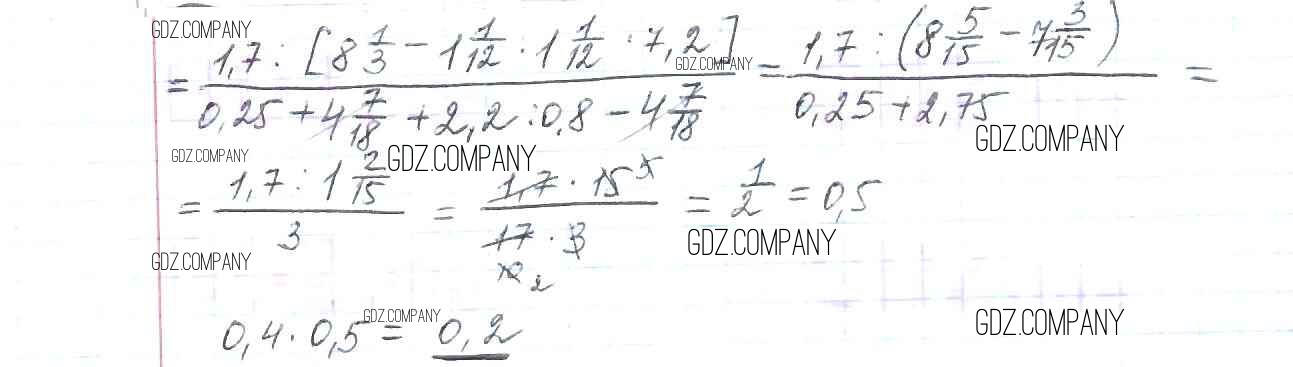 GDZ.COMPANY
= 1,7 : [8 1/3 − 1 1/12 · 1 1/12 · 7,2] / 0,25 + 4 7/18 + 2,2 : 0,8 − 4 7/18 = 1,7 : (8 5/15 − 7 3/15) / 0,25 + 2,75 =
GDZ.COMPANY
GDZ.COMPANY
GDZ.COMPANY GDZ.COMPANY
= 1,7 : 1 2/15 / 3 = 1,7 · 15 5 / 17 · 3 10 2 = 1/2 = 0,5
GDZ.COMPANY
GDZ.COMPANY
GDZ.COMPANY
0,4 · 0,5 = 0,2
GDZ.COMPANY